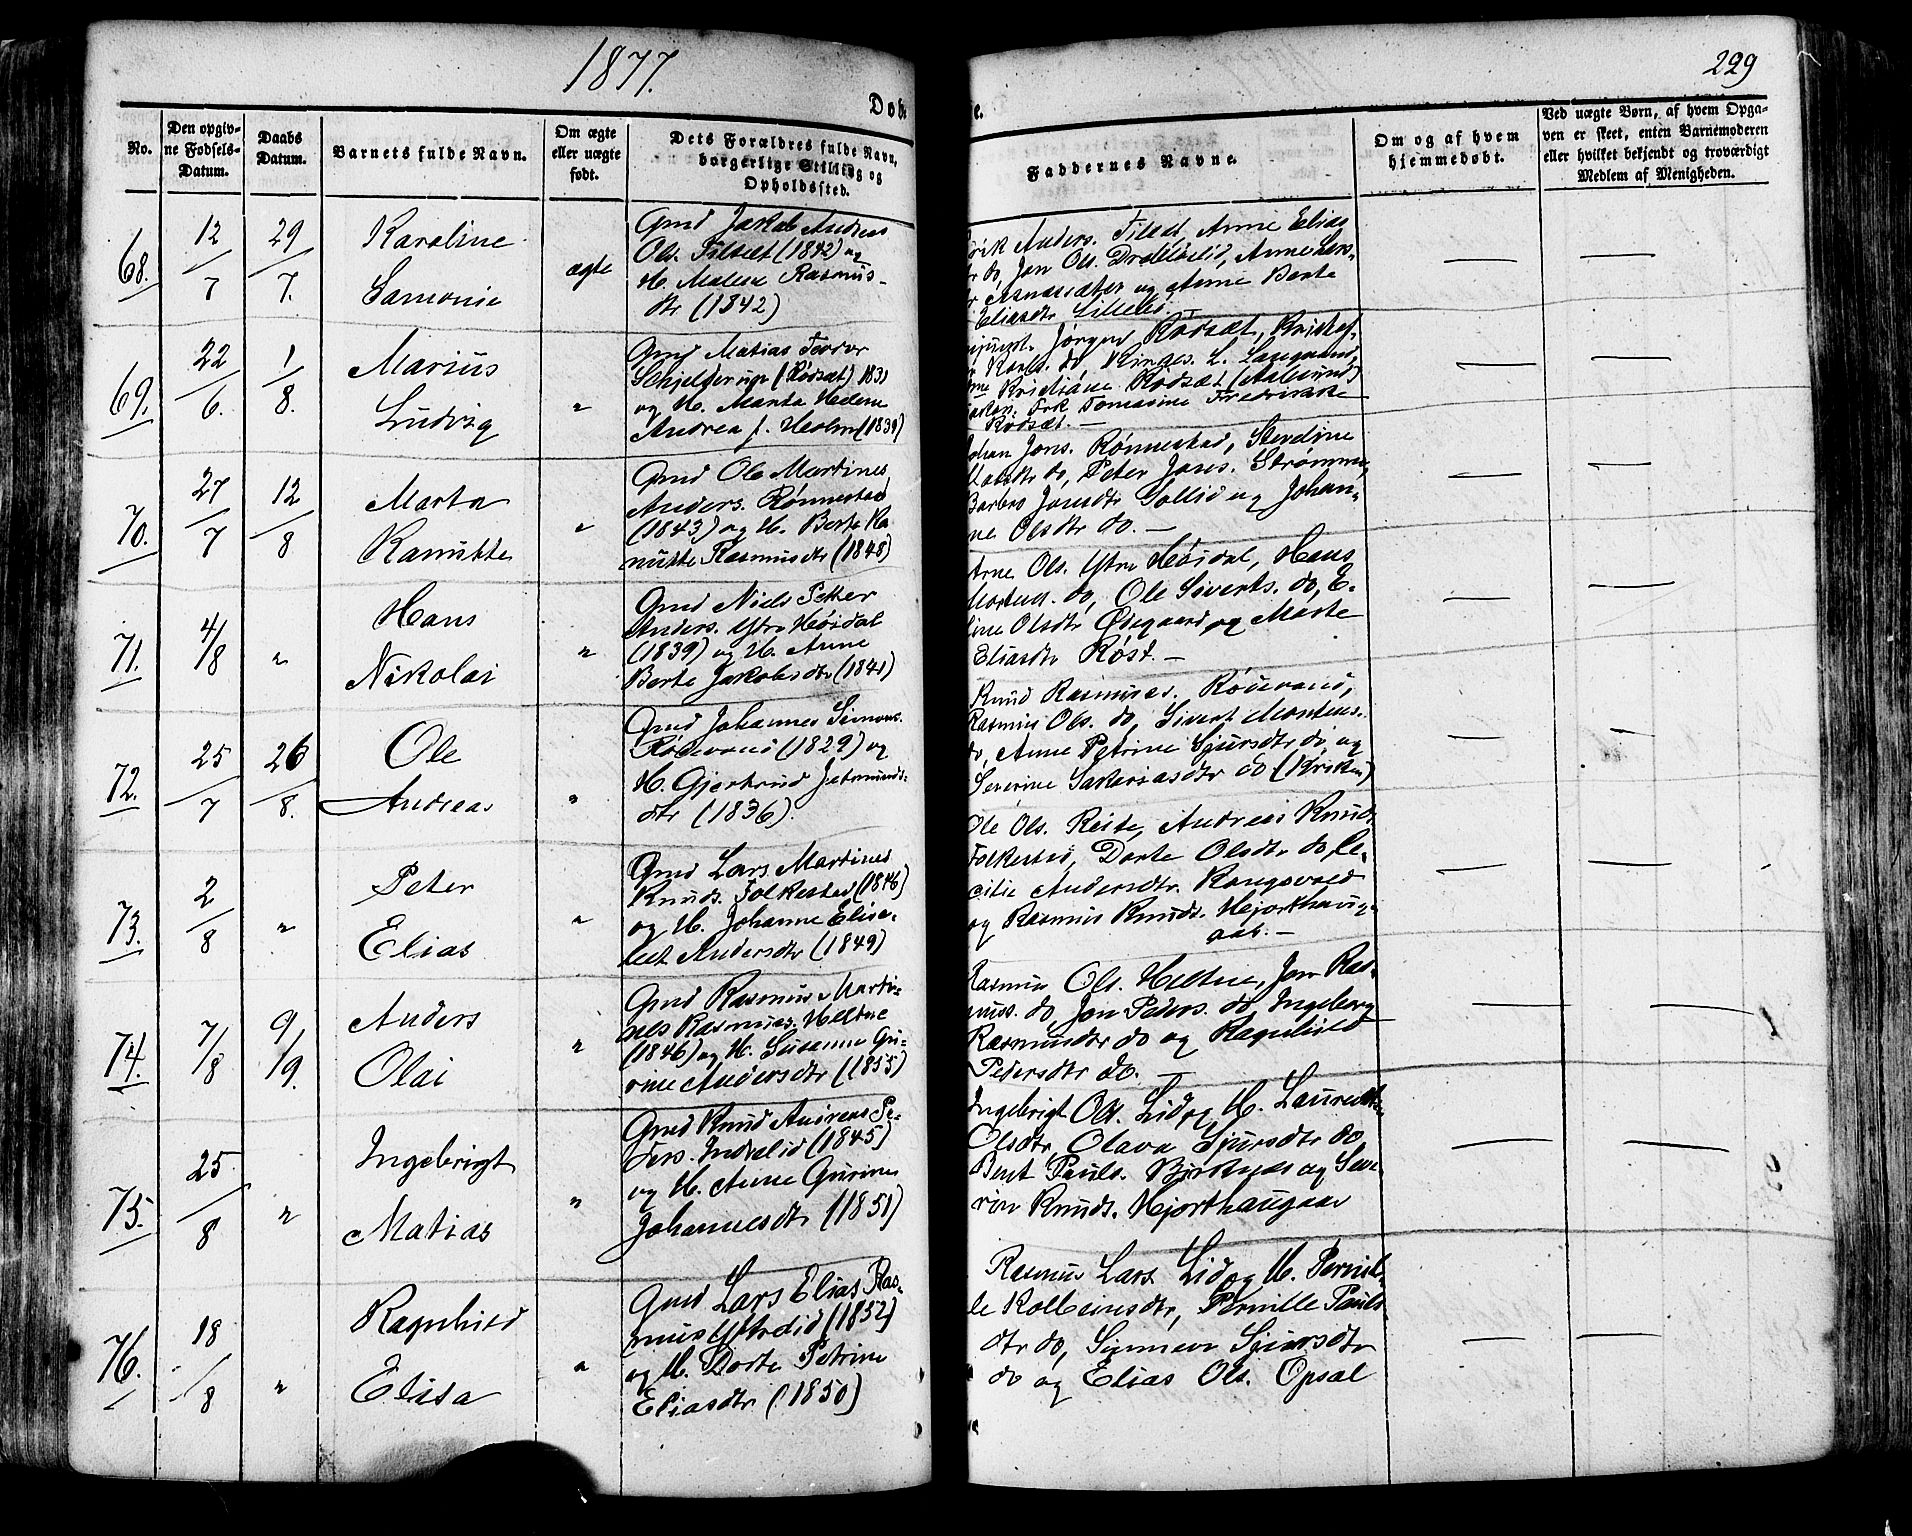 1877.
229
Døb
e.
No.
Den opgiv-
ne Fødsels-
Datum.
Daabs
Datum.
Barnets fulde Navn.
Om ægte
eller uægte
født.
Dets Forældres fulde Navn,
borgerlige Stilling og
Opholdssted.
Faddernes Navne.
Om og af hvem
hjemmedøbt.
Ved uægte Børn, af hvem Opga-
ven er skeet, enten Barnemoderen
eller hvilket bekjendt og troværdigt
Medlem af Menigheden.
68.
12/7
29/7.
Karoline
ægte
Gmd Jakob Andreas
Ols. Filset (1842) og
H. Malene Rasmus-
dtr (1842)
Anders. Filset, Anne Elias
do, Jon Ols. Anne Lars-
og Anne Berte
Eliasdtr
69.
22/6.
1/8.
Marius
Ludvig
"
Gmd Matias Teodor
Schjelderup (Rødsæt) 1831
og H. Marta Helene
Andrea f. Holm (1839)
Jørgen Rødsæt, Kristof-
Karls. do L.
Kristiane Rødsæt (Aalesund)
Frk Tomasine Fredrikke
Rødsæt. —
70.
27/7
12/8
Marta
Knutte
"
Gmd Ole Martines
Anders. Rønnestad
(1843) og H. Berte Ka
nutte Rasmusdtr (1848)
Johan Jons. Rønnestad, Steveline
do, Peter Jons. Strømme,
Barbro Jonsdtr Sollid og Johan-
ne Olsdtr do. —
71.
4/8
"
Hans
Nikolai
"
Gmd Niels Peter
Anders. Ytre Høidal
(1839) og H. Anne
Berte Jakobsdtr (1841)
Arne Ols. Ytre Høidal, Hans
Mortens. do, Ole Siverts. do, E-
line Olsdtr Ødegaard og Marte
Eliasdtr Røst. —
72.
25/7
26/8.
Ole
Andreas
"
Gmd Johannes Simons.
Rønevand (1829) og
H. Gjertrud Jetmunds-
dtr (1836).
Knud Rasmuses. Rønevand,
Rasmus Ols. do, Sivert Mortens.
do, Anne Petrine Sjursdtr do og
Severine Sakariasdtr do (Kriken)
73.
2/8
"
Peter
Elias
"
Gmd Lars Martines
Knuds. Folkestad (1846)
og H. Johanne Elisa-
bet Andersdtr (1849)
Ole Ols. Reite, Andreas Knuds
Folkestad, Dorte Olsdtr do, Ce-
cilie Andersdtr. Kongsvold
og Rasmus Knuds. Hjorthaug-
aas. —
74.
7/8
9/9.
Anders
Olai
"
Gmd Rasmus Marti-
nes Rasmuses. Heltne
(1846) og H. Susanne Gu-
rine Andersdtr (1855)
Rasmus Ols. Heltne, Jon Ras-
muss. do, Jon Peders. do, Ingeborg
Rasmusdtr do og Ragnhild
Pedersdtr do. —
75.
25/8
"
Ingebrigt
Matias
"
Gmd Knud Andreas Pe-
ders. Indrelid (1845)
og H. Anne Gurine
Johannesdtr (1851)
Ingebrigt Ols. Lid og H. Laurentse
Olsdtr, Olava Sjursdtr do
Bent Pauls. Birknes og Seve
rin Knuds. Hjorthaugaas
76.
18/8
"
Ragnhild
Elisa
"
Gmd Lars Elias Ras-
mus Ytrelid (1852)
og H. Dorte Petrine
Eliasdtr (1850)
Rasmus Lars. Lid og H. Pernil-
le Kolbeinsdtr, Pernille Pauls
dtr do, Synneve Sjursdtr
do og Elias Ols. Opsal